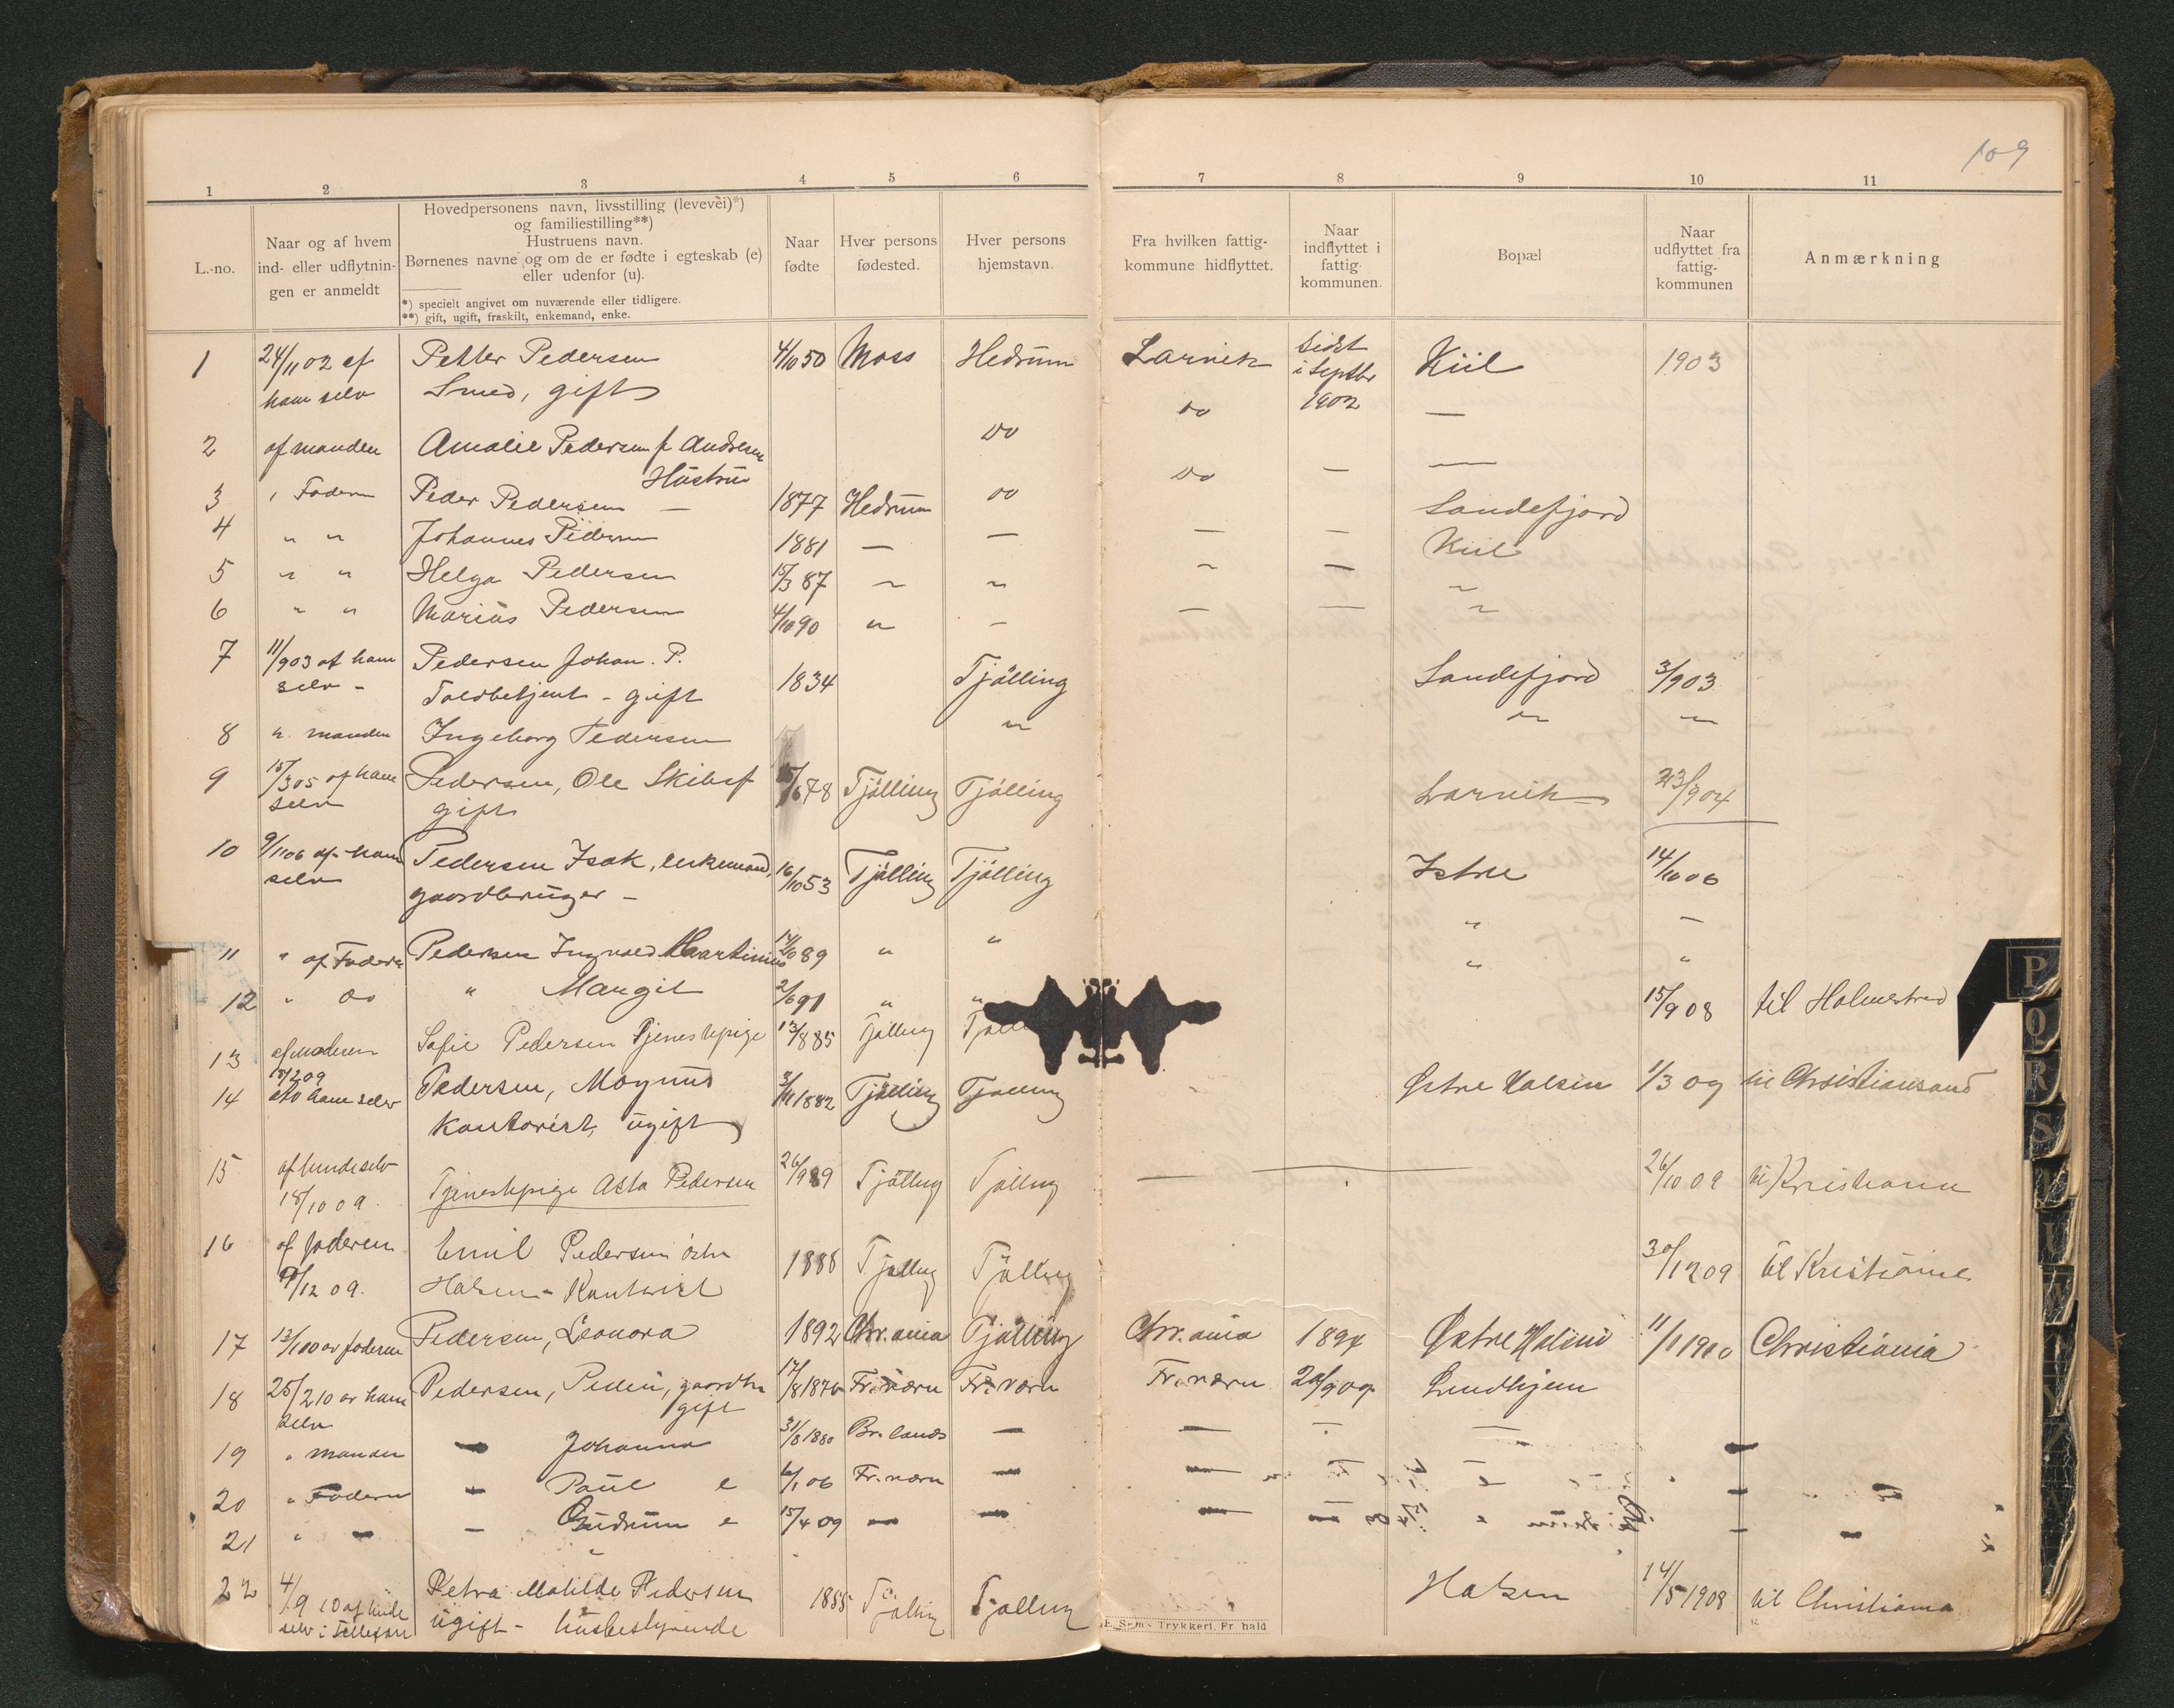 109
1 2 3 4 5 6 7 8 9 10 11
L.-no.
Naar og af hvem
ind- eller udflytnin-
gen er anmeldt
Hovedpersonens navn, livsstilling (levevei)*)
og familiestilling**)
Hustruens navn.
Børnenes navne og om de er fødte i egteskab (e)
eller udenfor (u).
*) specielt angivet om nuværende eller tidligere.
**) gift, ugift, fraskilt, enkemand, enke.
Naar
fødte
Hver persons
fødested.
Hver persons
hjemstavn.
Fra hvilken fattig-
kommune hidflyttet.
Naar
indflyttet i
fattig-
kommunen.
Bopæl
Naar
udflyttet fra
fattig-
kommunen
Anmærkning
1 24/11 02 af Petter Pedersen 4/10 50 Moss Hedrum Larvik sidst Kiil 1903
ham selv Smed, gift i Septbr
do 1902 —
2 af manden Amalie Pedersen f. Andresen do
Hustru do — —
3 " Faderen Peder Pedersen — 1877 Hedrum do Sandefjord
4 " " Johannes Pedersen 1881 — — — — Kiil
5 " " Helga Pedersen 15/3 87 " " " — "
6 " " Marius Pedersen 4/10 90 " — — — "
7 11/9 03 af ham Pedersen Johan. P. 1834 Tjølling Sandefjord 3/9 03
selv - Toldbetjent - gift
8 " manden Ingeborg Pedersen " " "
9 15/3 05 af ham Pedersen, Ole Skibsf 15/6 78 Tjølling Tjølling Larvik 23/9 04
selv gift
10 9/11 06 af ham Pedersen Isak, enkemand, 16/10 53 Tjølling Tjølling Istre 14/10 06
selv gaardbruger -
11 " af Faderen Pedersen Ingvald Martinius 14/10 89 " " " —
12 " do " Margit 2/6 91 " " " "
13 af Moderen Sofie Pedersen Tjenestepige 13/8 85 Tjølling Tjølling 15/9 08 til Holmestrand
14 18/2 09 af ham selv Pedersen, Magnus 3/11 1882 Tjølling Tjølling Østre Halsen 1/3 09 til Christiansand
kontorist, ugift
15 af hende selv Tjenestepige Asta Pedersen 26/9 89 Tjølling Tjølling — 26/10 09 til Kristiania
18/10 09.
16 af faderen Emil Pedersen østre 1888 Tjølling Tjølling 30/12 09 til Kristiania
/12 09. Halsen - Kontorist
17 13/1 00 av faderen Pedersen, Leonora 1892 Chr.ania Tjølling Chr.ania 1894 Østre Halsen 11/1 1910 Christiania
18 25/2 10 av ham Pedersen, Peder, gaardbr 17/8 1876 Fr.værn Fr.værn Fr.værn 20/9 09 Lundhjem
selv gift
19 " manden — Johanna 31/8 1880 Br.lands — — — —
20 " Faderen — Paul e 6/1 06 Fr.værn — —
21 " — — Gudrun e 15/4 09 — — — —
22 4/9 10 af hende Petra Matilde Pedersen 1885 Tjølling Tjølling Halsen 14/5 1908 til Christiania
selv i Telefon ugift - husbestyrende
E. Sems Trykkeri, Fr.hald
P
Q
R
S
T
U
W
Y
Z